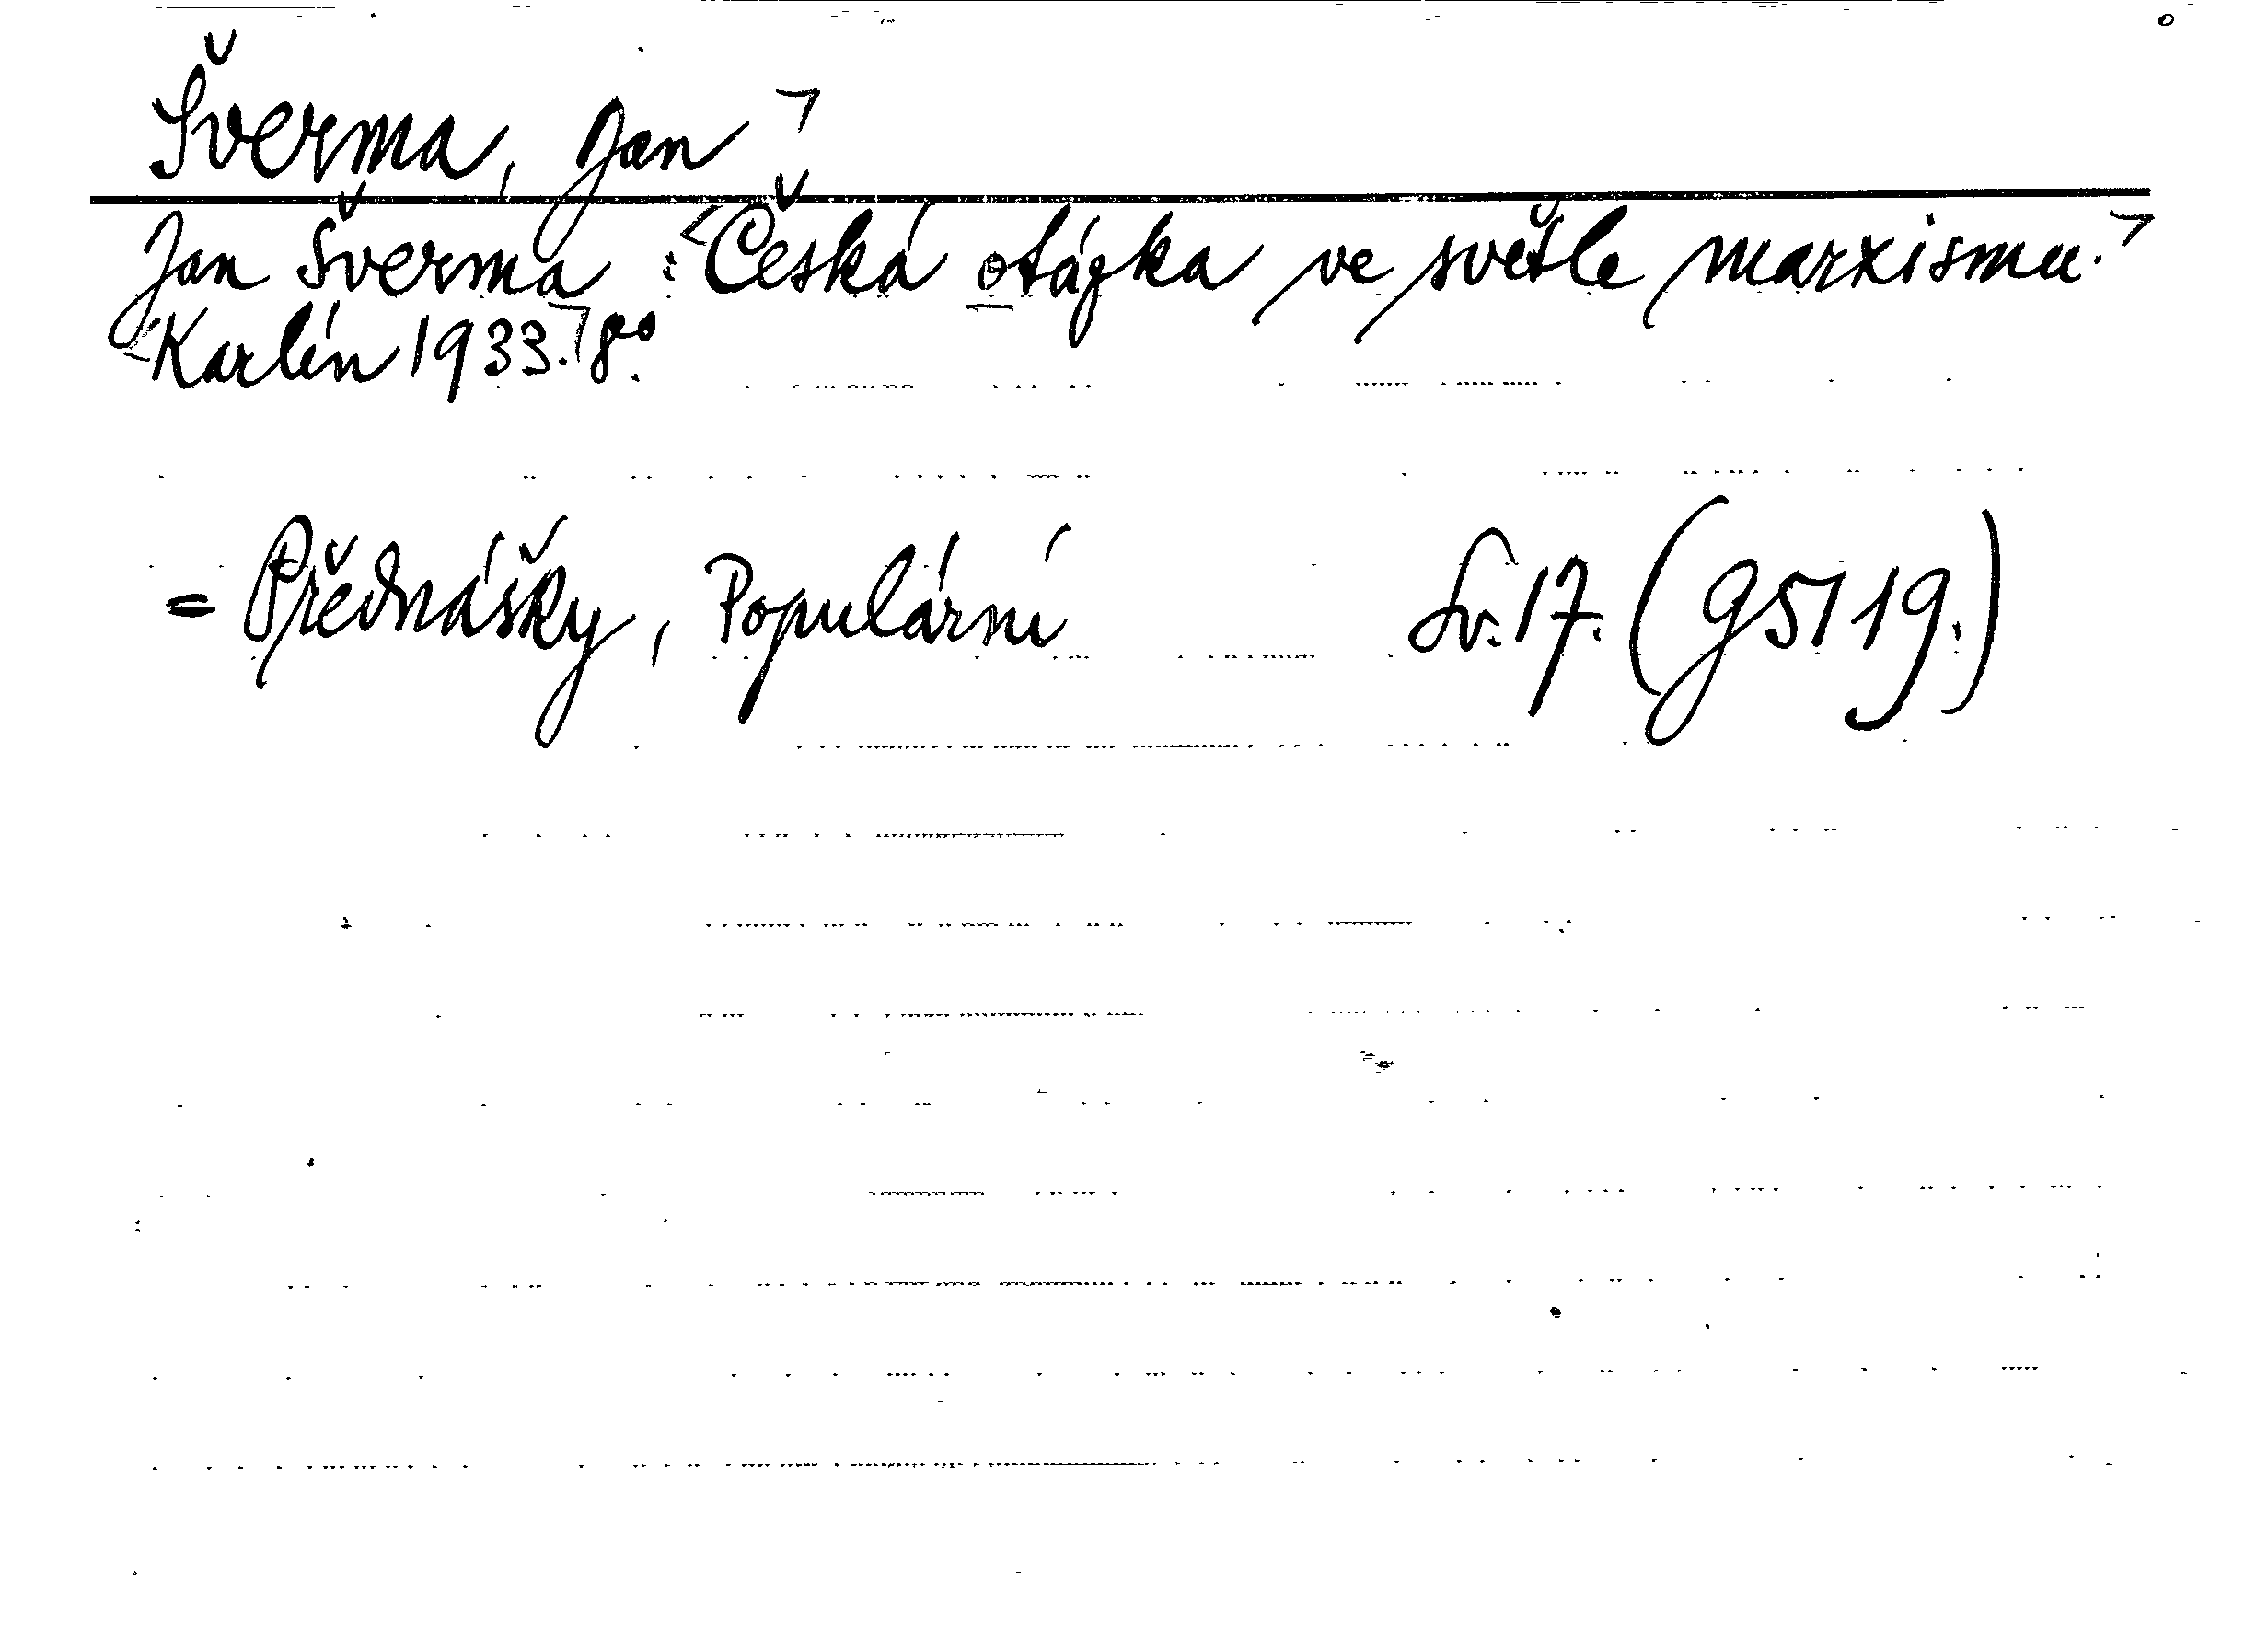 Šverma, Jan
Jan Šverma: Česká otázka ve světle marxismu.
Karlín 1933. 8º.
= Přednášky, Populární Sv. 17. (G 5119.)